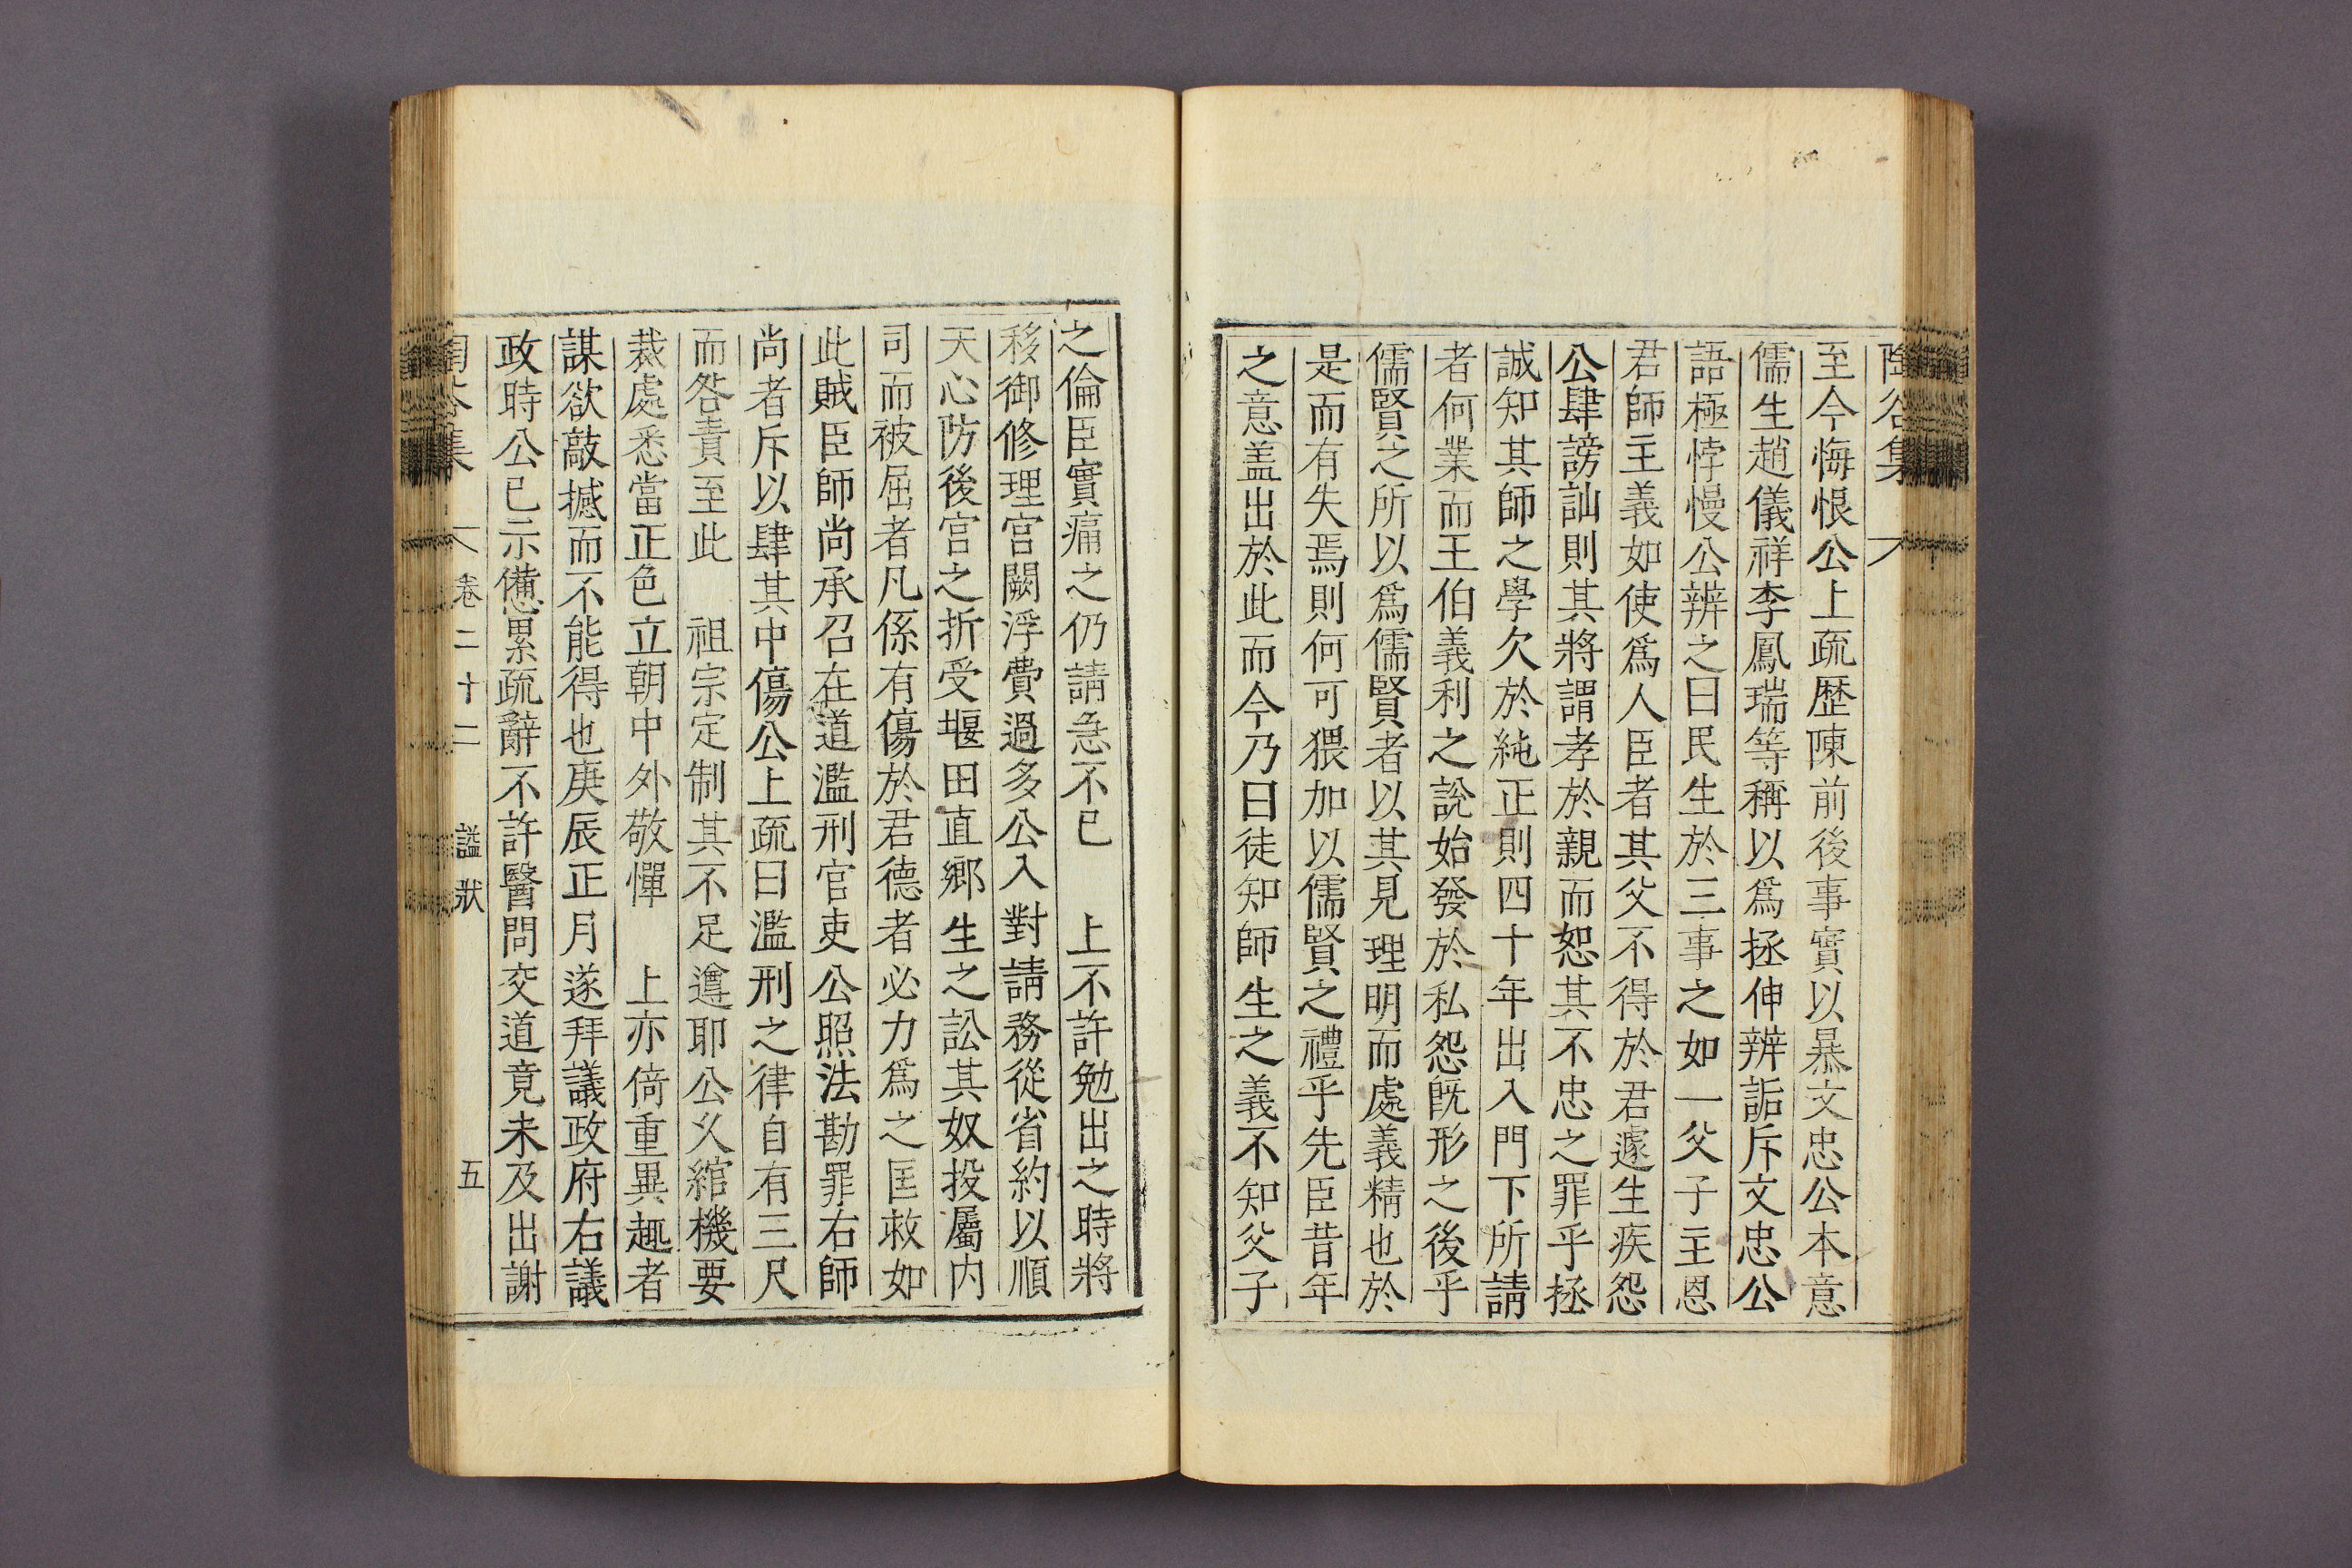 陶谷集
至今悔恨公上疏歷陳前後事實以暴文忠公本意
儒生趙儀祥李鳳瑞等稱以爲拯伸辨詬斥文忠公
語極悖慢公辨之曰民生於三事之如一父子主恩
君師主義如使爲人臣者其父不得於君遽生疾怨
公肆謗訕則其將謂孝於親而恕其不忠之罪乎拯
誠知其師之學欠於純正則四十年出入門下所請
者何業而王伯義利之說始發於私怨旣形之後乎
儒賢之所以爲儒賢者以其見理明而處義精也於
是而有失焉則何可猥加以儒賢之禮乎先臣昔年
之意盖出於此而今乃曰徒知師生之義不知父子
之倫臣實痛之仍請急不已　上不許勉出之時將
移御修理宫闕浮費過多公入對請務從省約以順
天心防後宫之折受堰田直鄉生之訟其奴投屬内
司而被屈者凡係有傷於君德者必力爲之匡救如
此賊臣師尚承召在道濫刑官吏公照法勘罪右師
尚者斥以肆其中傷公上疏曰濫刑之律自有三尺
而咎責至此　祖宗定制其不足遵耶公乆綰機要
裁處悉當正色立朝中外敬憚　上亦倚重異趣者
謀欲敲撼而不能得也庚辰正月遂拜議政府右議
政時公已示憊累疏辭不許醫問交道竟未及出謝
陶谷集　卷二十二　謚狀　五